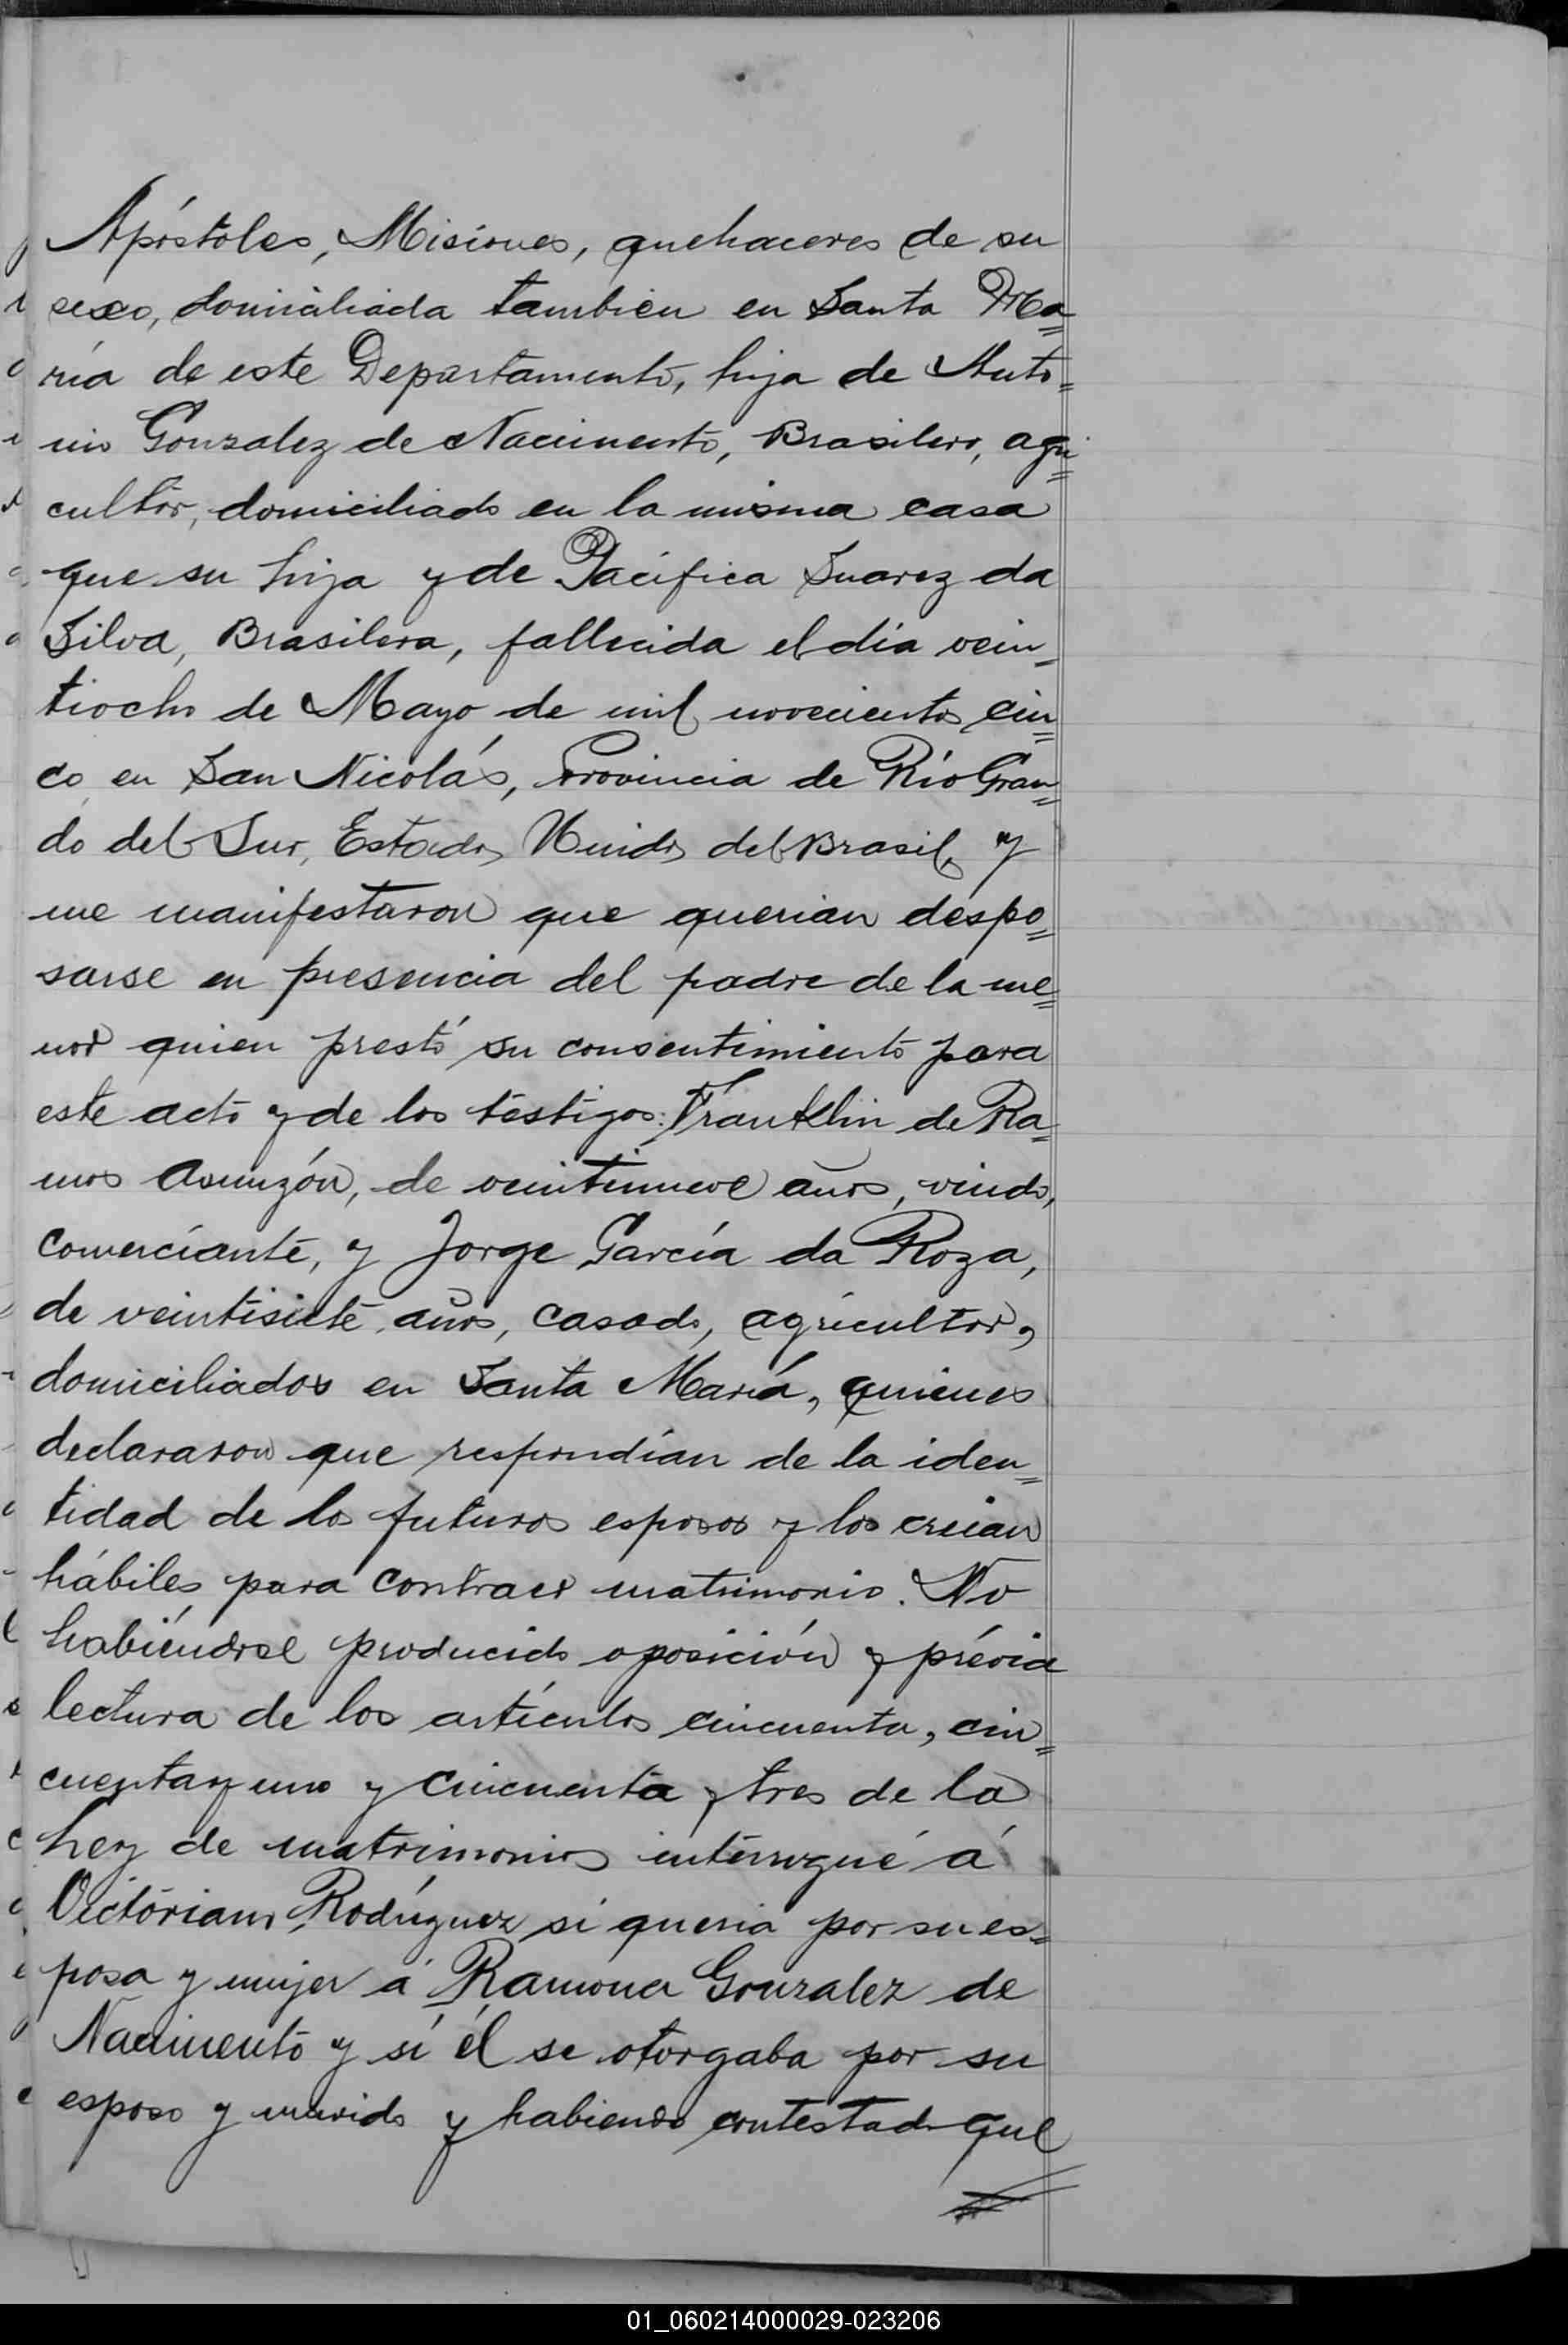 Apóstoles, Misiones, quehaceres de su
sexo, domiciliada tambien en Santa Ma=
ría de este Departamento, hija de Anto=
nio Gonzalez de Nacimento, Brasilero, agri=
cultor, domiciliado en la misma casa
que su hija y de Pacífica Suarez da
Silva, Brasilera, fallecida el día vein=
tiocho de Mayo de mil novecientos cin=
co en San Nicolás, Provincia de Río Gran=
do del Sur, Estados Unidos del Brasil, y
me manifestaron que querian despo=
sarse en presencia del padre de la me=
nor quien prestó su consentimiento para
este acto y de los testigos: Franklin de Ra=
mos Asunzón, de veintinueve años, viudo,
comerciante, y Jorge García da Roza,
de veintisiete años, casado, agricultor,
domiciliados en Santa María, quienes
declararon que respondían de la iden=
tidad de los futuros esposos y los creian
hábiles para contraer matrimonio. No
habiéndose producido oposición y prévia
lectura de los artículos cincuenta, cin=
cuenta y uno y cincuenta y tres de la
Ley de matrimonios interrogué á
Victoriano Rodríguez si queria por su es=
posa y mujer á Ramona Gonzalez de
Nacimento y sí él se otorgaba por su
esposo y marido y habiendo contestado que
01_060214000029-023206